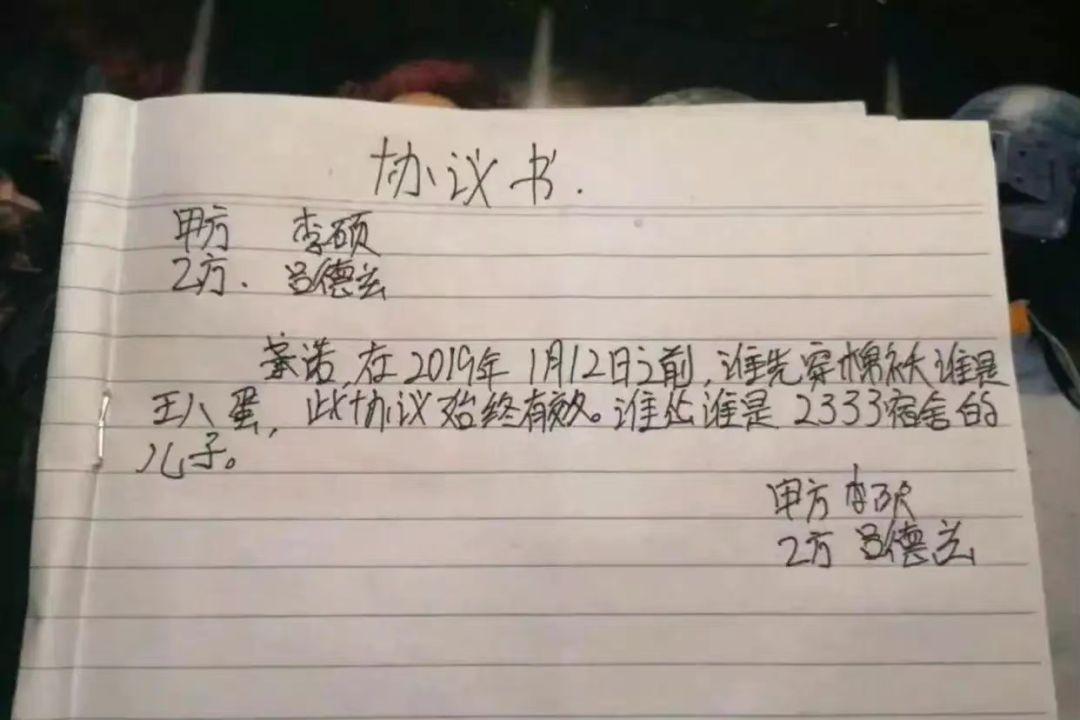 协议书.
甲方 李硕
乙方. 吕德兰
承诺,在2019年1月12日之前,谁先穿棉袄谁是
王八蛋,此协议始终有效。谁怂谁是2333宿舍的
儿子。
甲方 李硕
乙方 吕德兰